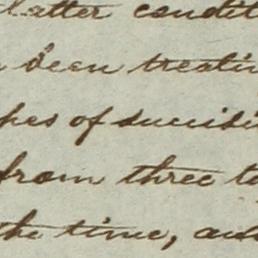 latter condit
been treatin
pes of suicidi
from three t
the time, and